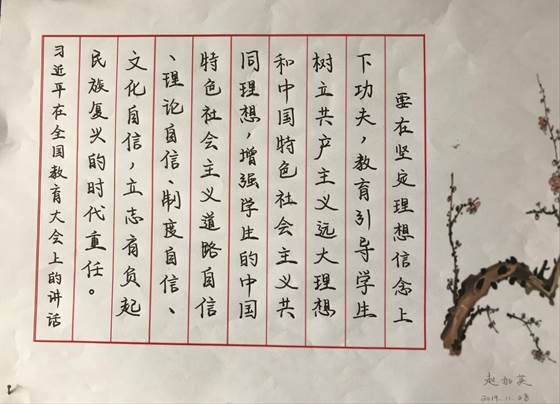 要在坚定理想信念上
下功夫,教育引导学生
树立共产主义远大理想
和中国特色社会主义共
同理想,增强学生的中国
特色社会主义道路自信
、理论自信、制度自信、
文化自信,立志肩负起
民族复兴的时代重任。
习近平在全国教育大会上的讲话
赵加英
2019.11.28